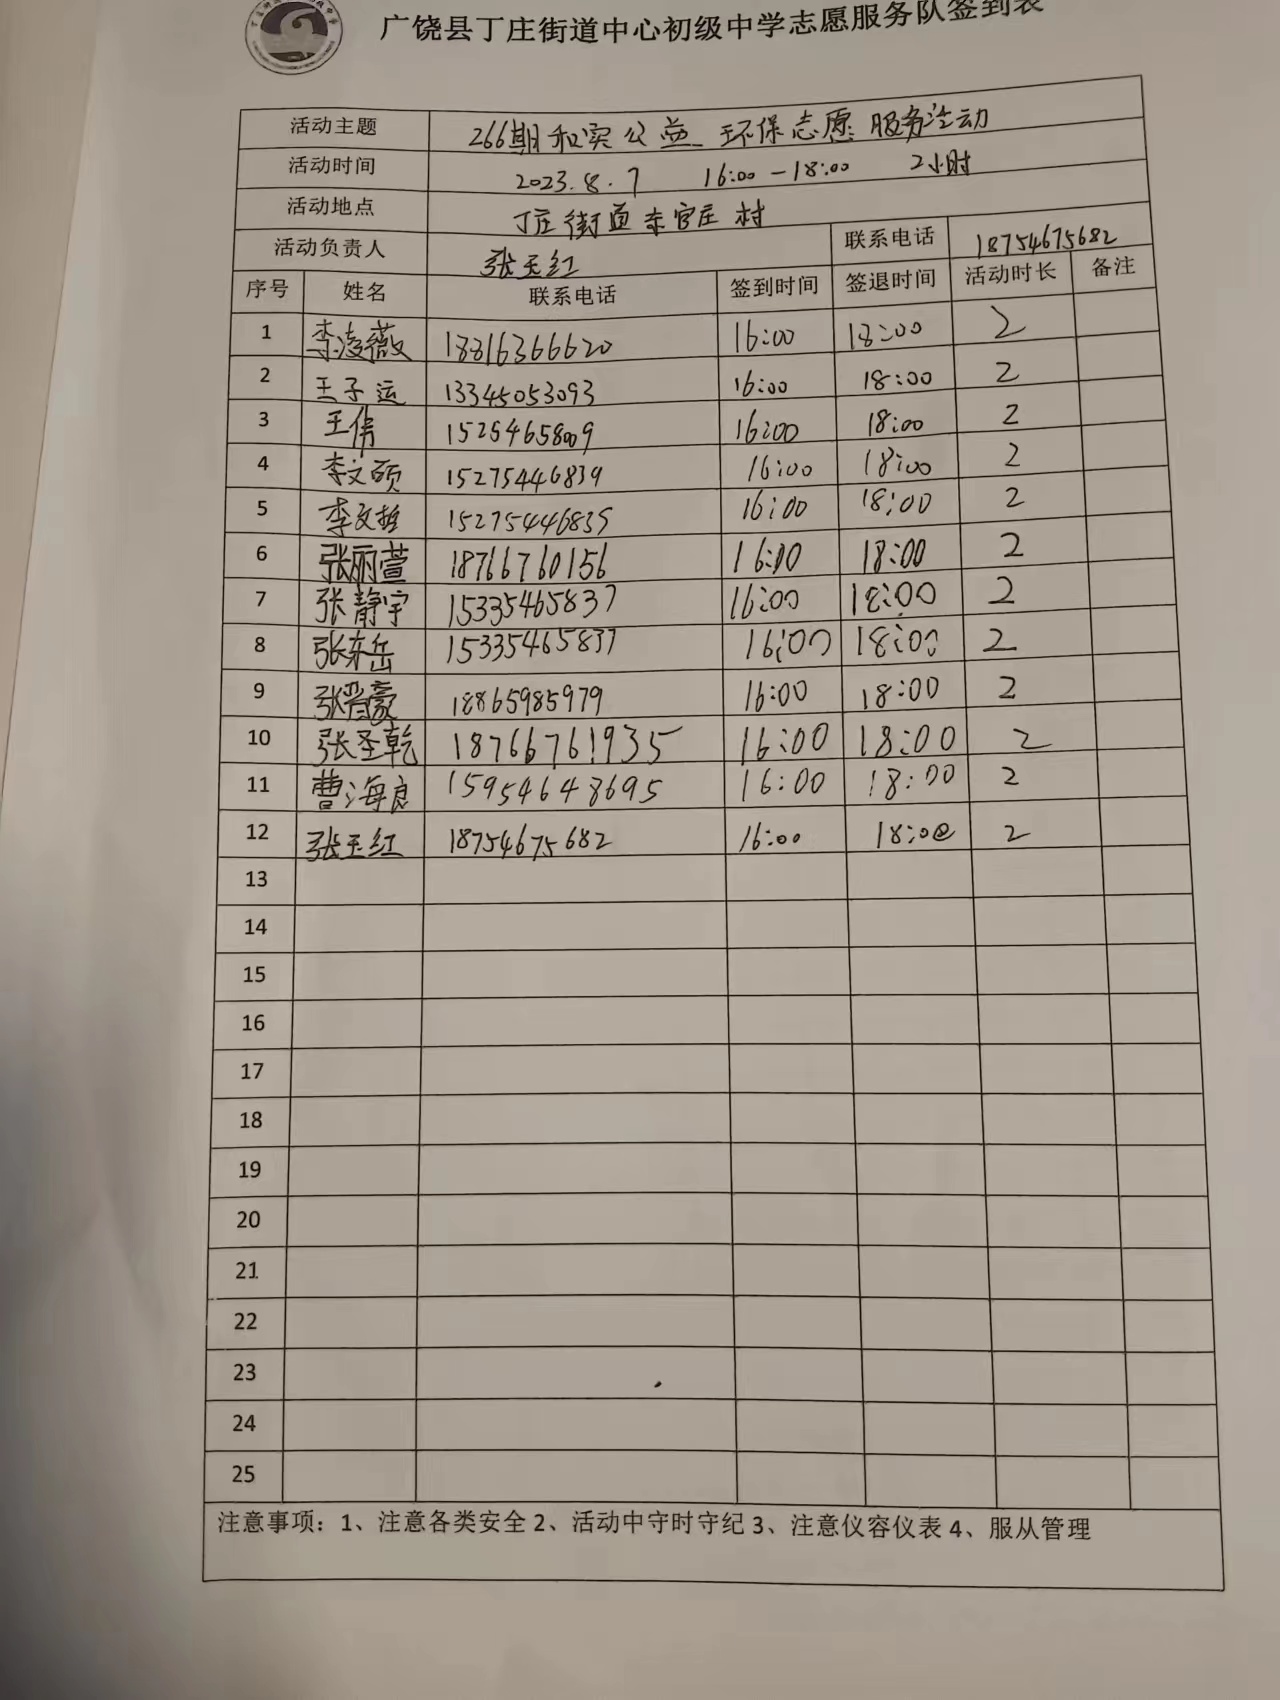 广饶县丁庄街道中心初级中学志愿服务队签到表
活动主题 266期和实公益 环保志愿服务活动
活动时间 2023.8.7 16:00-18:00 2小时
活动地点 丁庄街道东官庄村
活动负责人 张玉红 联系电话 18754675682
序号 姓名 联系电话 签到时间 签退时间 活动时长 备注
1 李凌薇 18816366620 16:00 18:00 2
2 王子运 13345053093 16:00 18:00 2
3 王倩 15254658009 16:00 18:00 2
4 李文硕 15275446839 16:00 18:00 2
5 李文哲 15275446839 16:00 18:00 2
6 张丽萱 18766760156 16:00 18:00 2
7 张静宇 15335465837 16:00 18:00 2
8 张东岳 15335465837 16:00 18:00 2
9 张晋豪 18865985979 16:00 18:00 2
10 张圣乾 18766761935 16:00 18:00 2
11 曹海良 15954648695 16:00 18:00 2
12 张玉红 18754675682 16:00 18:00 2
13
14
15
16
17
18
19
20
21
22
23
24
25
注意事项：1、注意各类安全 2、活动中守时守纪 3、注意仪容仪表 4、服从管理